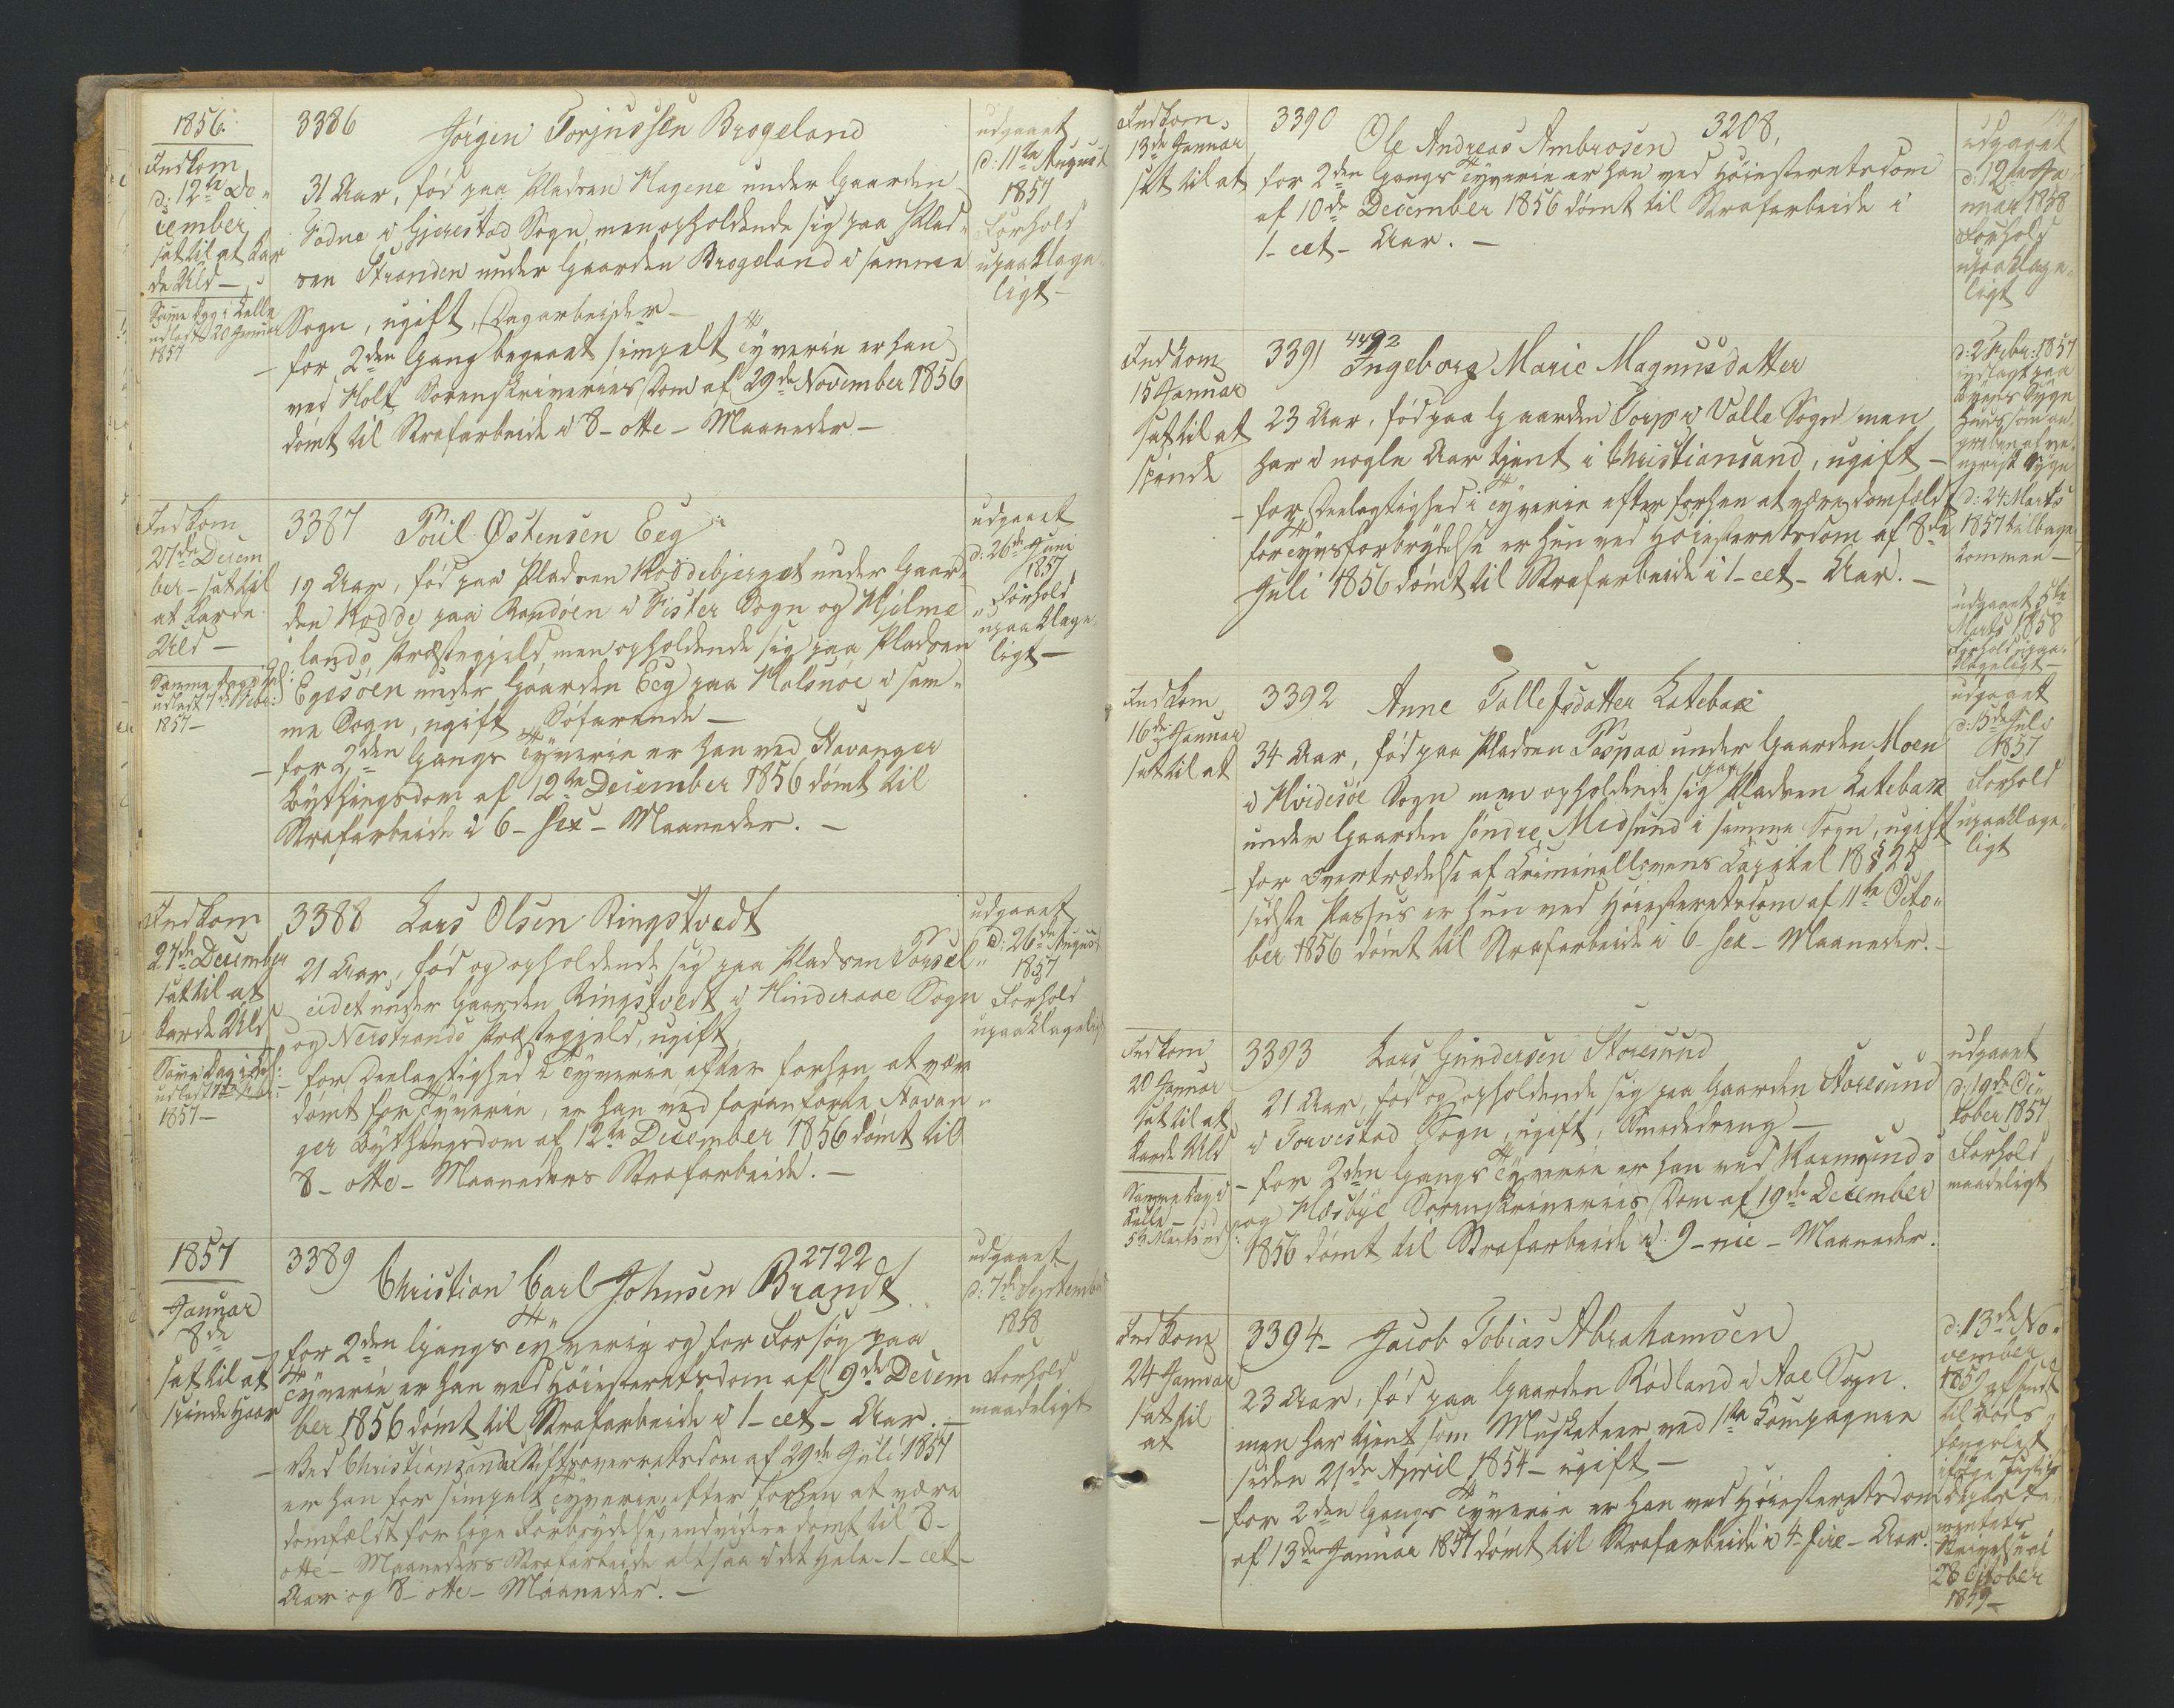 1856.
Indkom
d: 12te De„
cember
sat til at kar
de Uld —
Samme Dag i Celle
udlagt 20 Januar
1857
3386 Jörgen Torjussen Brogeland
31 Aar, föd paa Pladsen Hagene under Gaarden
Sodne i Gjerestad Sogn, men opholdende sig paa Plad„
sen Stranden under Gaarden Brogeland i samme
Sogn, ugift, Dagarbeider —
— for 2den Gang begaaet simpelt Tyverie er han
ved Holt Sorenskriveries Dom af 29de November 1856
dömt til Strafarbeide i 8 – otte – Maaneder —
udgaaet
d: 11te August
1857
Forhold
upaaklage„
ligt —
Indkom
27de Decem
ber – sat til
at karde
Uld —
Samme Dag i Cel:
udladt 7de Febr:
1857 —
3387 Poul Østensen Eeg
19 Aar, föd paa Pladsen Roddebjerget under Gaar„
den Rodde paa Randöen i Fister Sogn og Hjelme
lands Præstegjeld, men opholdende sig paa Pladsen
Egesöen under Gaarden Eeg paa Halsnöe i sam„
me Sogn, ugift, Söfarende —
— for 2den Gangs Tyverie er han ved Stavanger
Bythingsdom af 12te December 1856 dömt til
Strafarbeide i 6 – sex – Maaneder. —
udgaaet
d: 26de Juni
1857
Forhold
upaaklage„
ligt —
Indkom
27de December
sat til at
karde Uld
Samme Dag i Cel:
udladt 7de Febr:
1857 —
3388 Lars Olsen Ringstvedt
21 Aar, föd og opholdende sig paa Pladsen Torsel„
eidet under Gaarden Ringstvedt i Hinderaae Sogn
og Nerstrands Præstegjeld, ugift,
for Deelagtighed i Tyverie, efter forhen at være
dömt for Tyverie, er han ved foranförte Stavan„
ger Bythingsdom af 12te December 1856 dömt til
8 – otte – Maaneders Strafarbeide. —
udgaaet
d: 26de August
1857
Forhold
upaaklageligt
1857
Januar
8de
sat til at
spinde Haar
3389 2722
Christian Carl Johnsen Brandt
for 2den Gangs Tyverie og for Forsög paa
Tyverie er han ved Höiesteretsdom af 9de Decem
ber 1856 dömt til Strafarbeide i 1 – eet – Aar. —
— Ved Christiansands Stiftsoverretsdom af 29de Juli 1857
er han for simpelt Tyverie, efter forhen at være
domfældt for lige Forbrydelse, endvidere dömt til 8 –
otte – Maaneders Strafarbeide altsaa i det Hele – 1 – eet –
Aar og 8 – otte – Maaneder. —
udgaaet
d: 7de September
1858
Forhold
maadeligt
Indkom
13de Januar
sat til at
3390 3208,
Ole Andreas Ambrosen
for 2den Gangs Tyverie er han ved Höiesteretsdom
af 10de December 1856 dömt til Strafarbeide i
1 – eet – Aar. —
udgaaet
d: 12te Ja„
nuar 1858
Forhold
upaaklage„
ligt
Indkom
15 Januar
sat til at
spinde
3391 4492
Ingeborg Marie Magnusdatter
23 Aar, föd paa Gaarden Torp i Valle Sogn men
har i nogle Aar tjent i Christiansand, ugift —
— for Deelagtighed i Tyverie efter forhen at være domfældt
for Tyvsforbrydelse er hun ved Höiesteretsdom af 8de
Juli 1856 dömt til Strafarbeide i 1 – eet – Aar. —
d: 2 Febr: 1857
indlagt paa
Byens Syge
huus som an„
greben af ve„
nerisk Syge
d: 24 Marts
1857 tilbage
kommen —
udgaaet 5te
Marts 1858
Forhold upaa„
klageligt —
Indkom
16de Januar
sat til at
3392 Anne Tallefsdatter Latebak
34 Aar, föd paa Pladsen Paspaa under Gaarden Moen
i Hvidesöe Sogn men opholdende sig paa Pladsen Latebak
under Gaarden söndre Midsund i samme Sogn, ugift
— for Overtrædelse af Criminallovens Capitel 18 § 25
sidste Passus er hun ved Höiesteretsdom af 11te Octo„
ber 1856 dömt til Strafarbeide i 6 – sex – Maaneder. —
udgaaet
d: 15de Juli
1857
Forhold
upaaklage„
ligt
Indkom
20 Januar
sat til at
karde Uld
Samme Dag i
Celle —
5te Marts ud
3393 Lars Gundersen Storesund
21 Aar, föd og opholdende sig paa Gaarden Storesund
i Torvestad Sogn, ugift, Smededreng —
— for 2den Gangs Tyverie er han ved Karmsunds
og Hesbye Sorenskriveries Dom af 19de December
1856 dömt til Strafarbeide i 9 – nie – Maaneder.
udgaaet
d: 19de Oc„
tober 1857
Forhold
maadeligt
Indkom
24 Januar
sat til
at
3394 – Jacob Tobias Abrahamsen
23 Aar, föd paa Gaarden Rödland i Aae Sogn
men har tjent som Musketeer ved 1te Compagnie
siden 21de April 1854 – ugift —
— for 2den Gangs Tyverie er han ved Höiesteretsdom
af 13de Januar 1857 dömt til Strafarbeide i 4 – fire – Aar.
d: 13de No„
vember
1859 afsendt
til Bods„
fængslet
ifölge Justits
departe„
mentets
Skrivelse af
28 October
1859 —